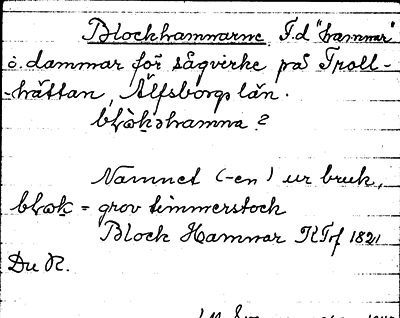 Blockhammarne, F.d "hammar"
o. dammar för sågvirke på Troll-
-hättan, Älfsborgs län.
?
Namnet (-en) ur bruk.
= grov timmerstock
Block Hammar RTrf 1821
Du R.